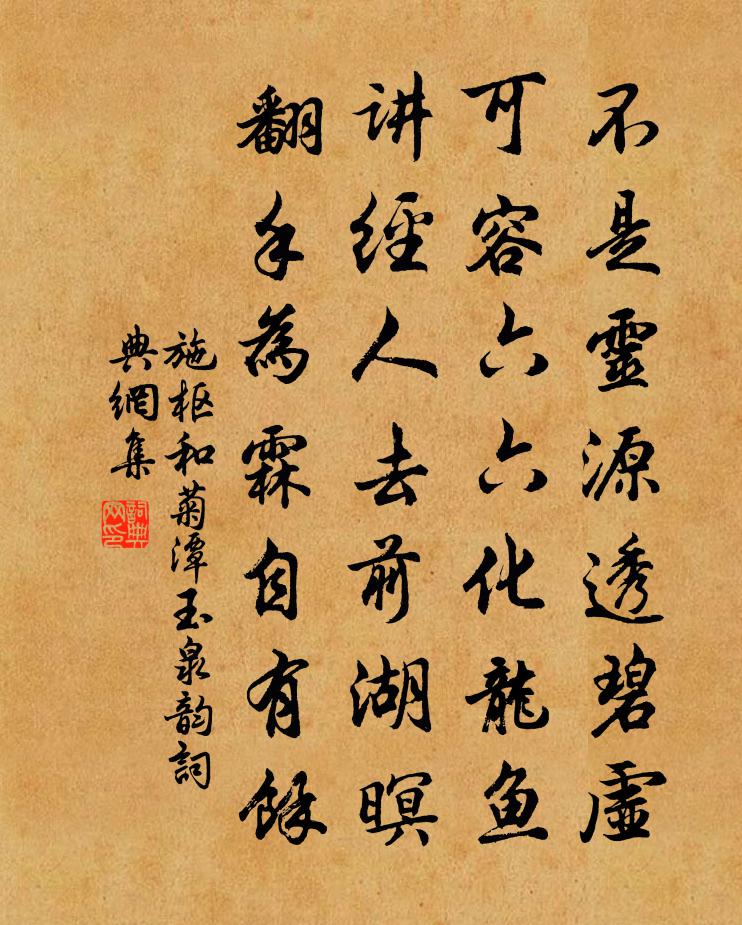 不是靈源透碧虛
可容六六化龍魚
讲經人去前湖暝
翻手為霖自有餘
施枢和菊潭玉泉韵詞
典網集
詞典
网印